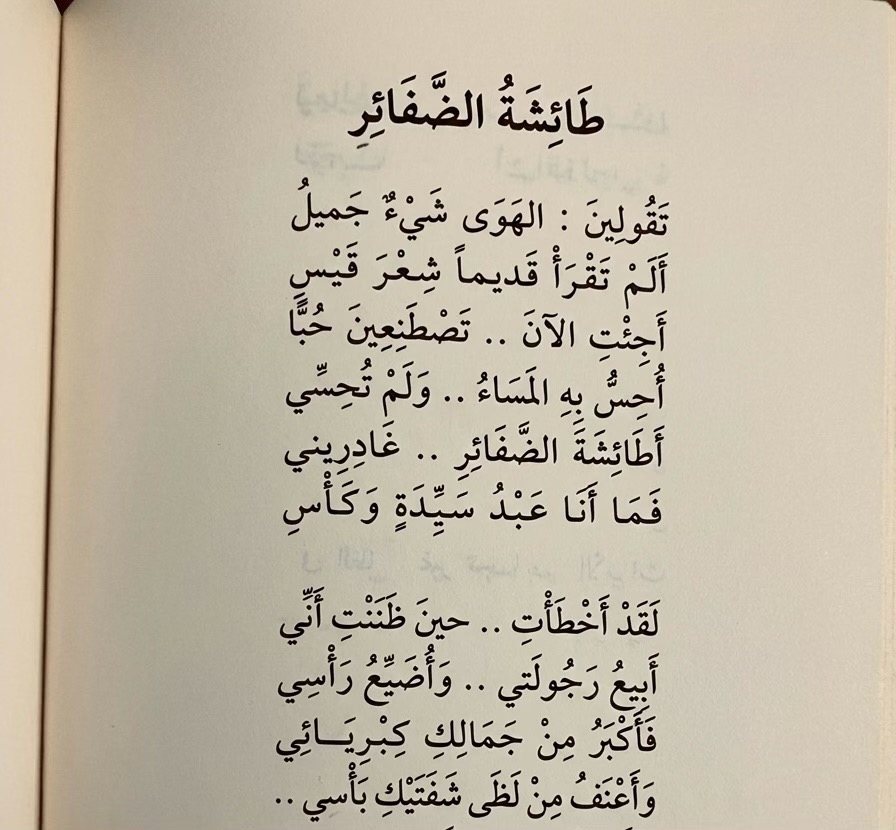 طَائِشَةُ الضَّفَائِرِ
تَقُولِينَ : الهَوَى شَيْءٌ جَميلُ
أَلَمْ تَقْرَأْ قَديماً شِعْرَ قَيْسِ
أَجِئْتِ الآنَ .. تَصْطَنِعِينَ حُبًّا
أُحِسُّ بِهِ المَسَاءُ .. وَلَمْ تُحِسِّي
أَطَائِشَةَ الضَّفَائِرِ .. غَادِرِيني
فَمَا أَنَا عَبْدُ سَيِّدَةٍ وَكَأْسِ
لَقَدْ أَخْطَأْتِ .. حينَ ظَنَنْتِ أَنِّي
أَبِيعُ رَجُولَتي .. وَأُضَيِّعُ رَأْسِي
فَأَكْبَرُ مِنْ جَمَالِكِ كِبْرِيَـائِي
وَأَعْنَفُ مِنْ لَظَى شَفَتَيْكِ بَأْسِي ..